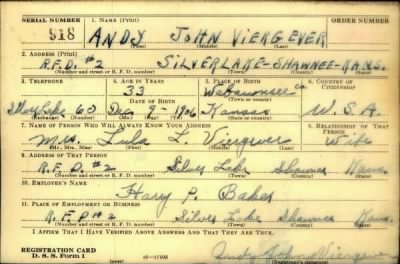 SERIAL NUMBER 1. NAME (Print) ORDER NUMBER
918 ANDY JOHN VIERGEVER
(First) (Middle) (Last)
2. ADDRESS (Print)
R.F.D. #2 SILVERLAKE-SHAWNEE-KANS.
(Number and street or R. F. D. number) (Town) (County) (State)
3. TELEPHONE 4. AGE IN YEARS 5. PLACE OF BIRTH 6. COUNTRY OF CITIZENSHIP
33 Wabaunsee Co.
DATE OF BIRTH (Town or county)
Silver Lake 60 Dec 9-1906 Kansas U.S.A.
(Exchange) (Number) (Mo.) (Day) (Yr.) (State or country)
7. NAME OF PERSON WHO WILL ALWAYS KNOW YOUR ADDRESS 8. RELATIONSHIP OF THAT PERSON
Mrs. Lula L. Viergever Wife
(Mr., Mrs., Miss) (First) (Middle) (Last)
9. ADDRESS OF THAT PERSON
R.F.D. #2 Silver Lake Shawnee Kans.
(Number and street or R. F. D. number) (Town) (County) (State)
10. EMPLOYER'S NAME
Harry P. Baker
11. PLACE OF EMPLOYMENT OR BUSINESS
R.F.D #2 Silver Lake Shawnee Kans.
(Number and street or R. F. D. number) (Town) (County) (State)
I AFFIRM THAT I HAVE VERIFIED ABOVE ANSWERS AND THAT THEY ARE TRUE.
REGISTRATION CARD
D. S. S. Form 1 16-17105 Andy John Viergever
(Registrant's signature)